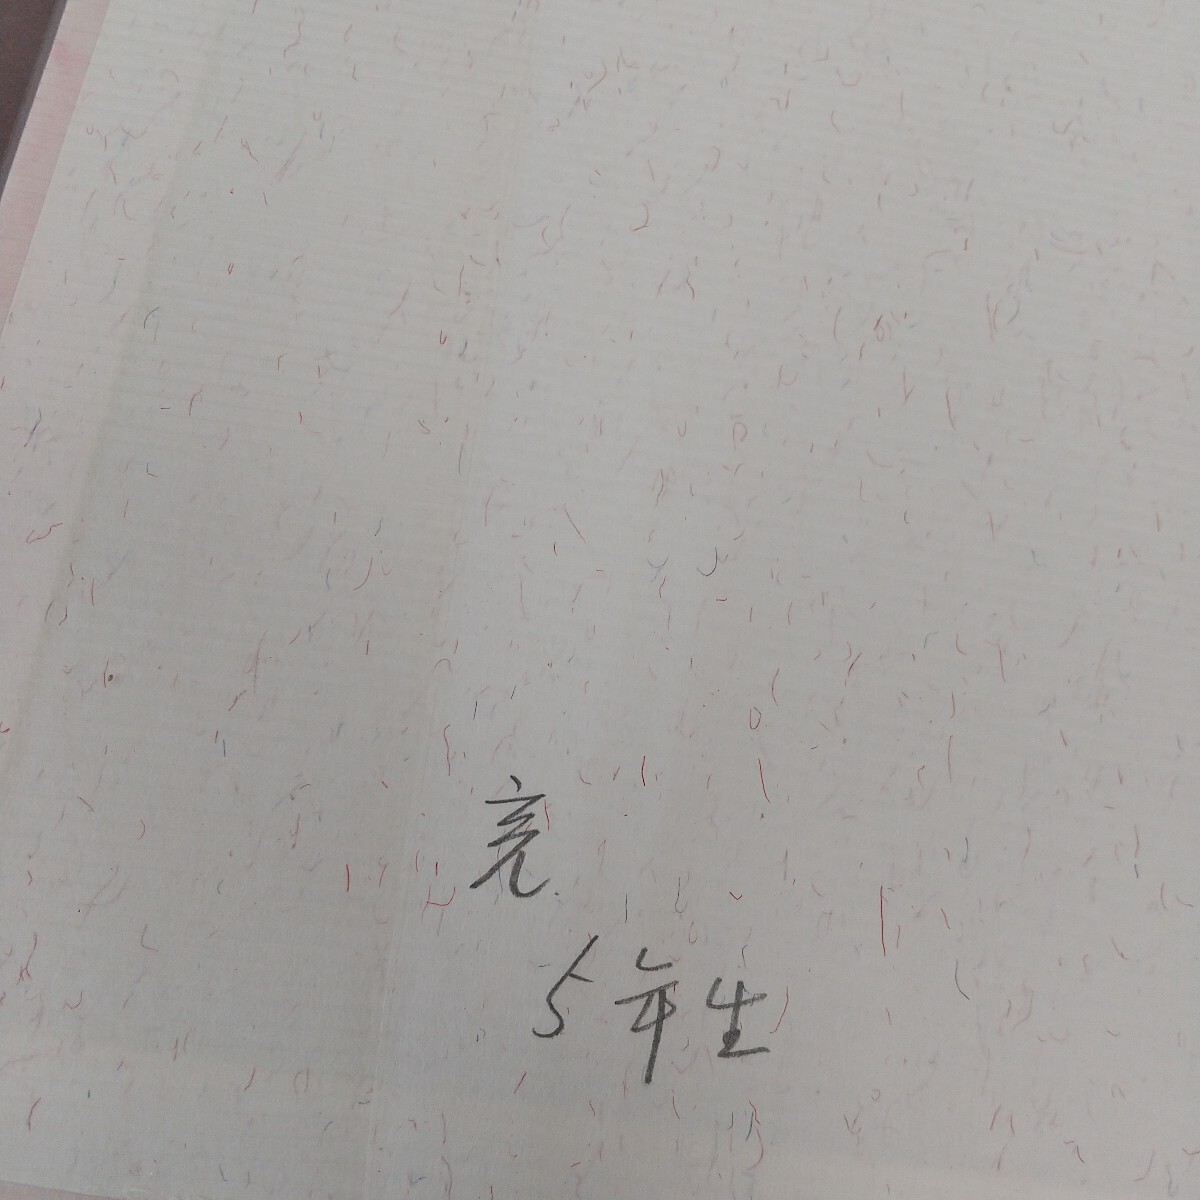 亮
5年生